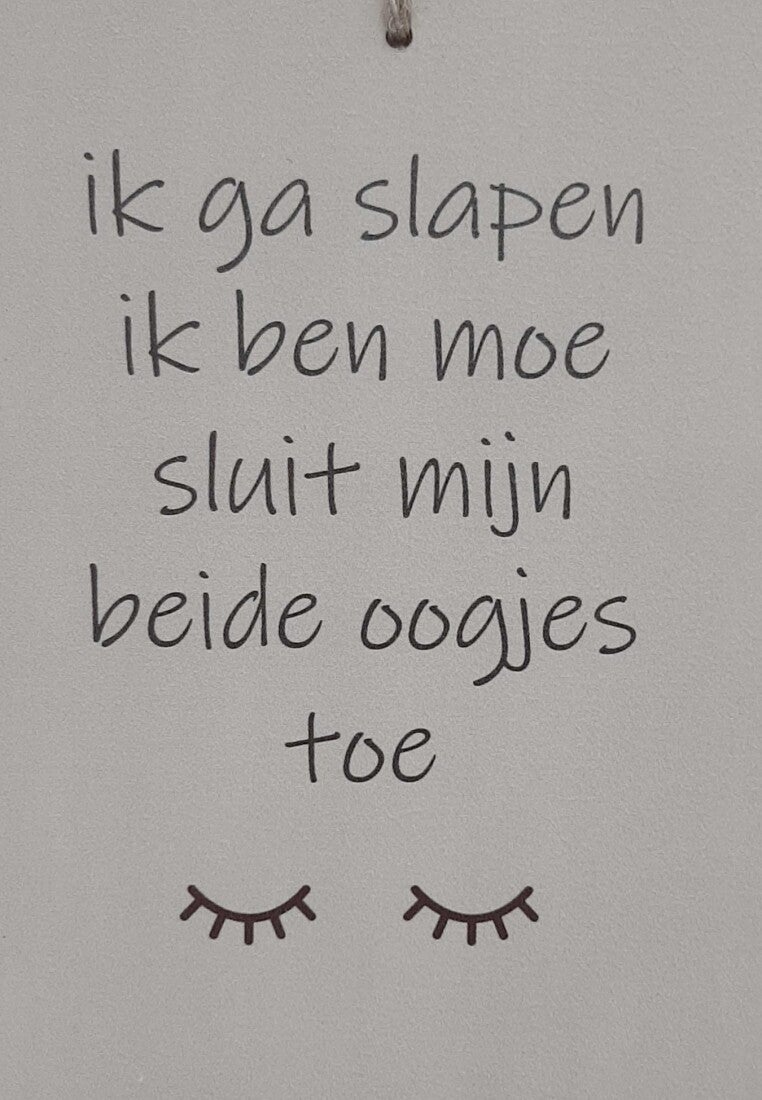 ik ga slapen
ik ben moe
sluit mijn
beide oogjes
toe